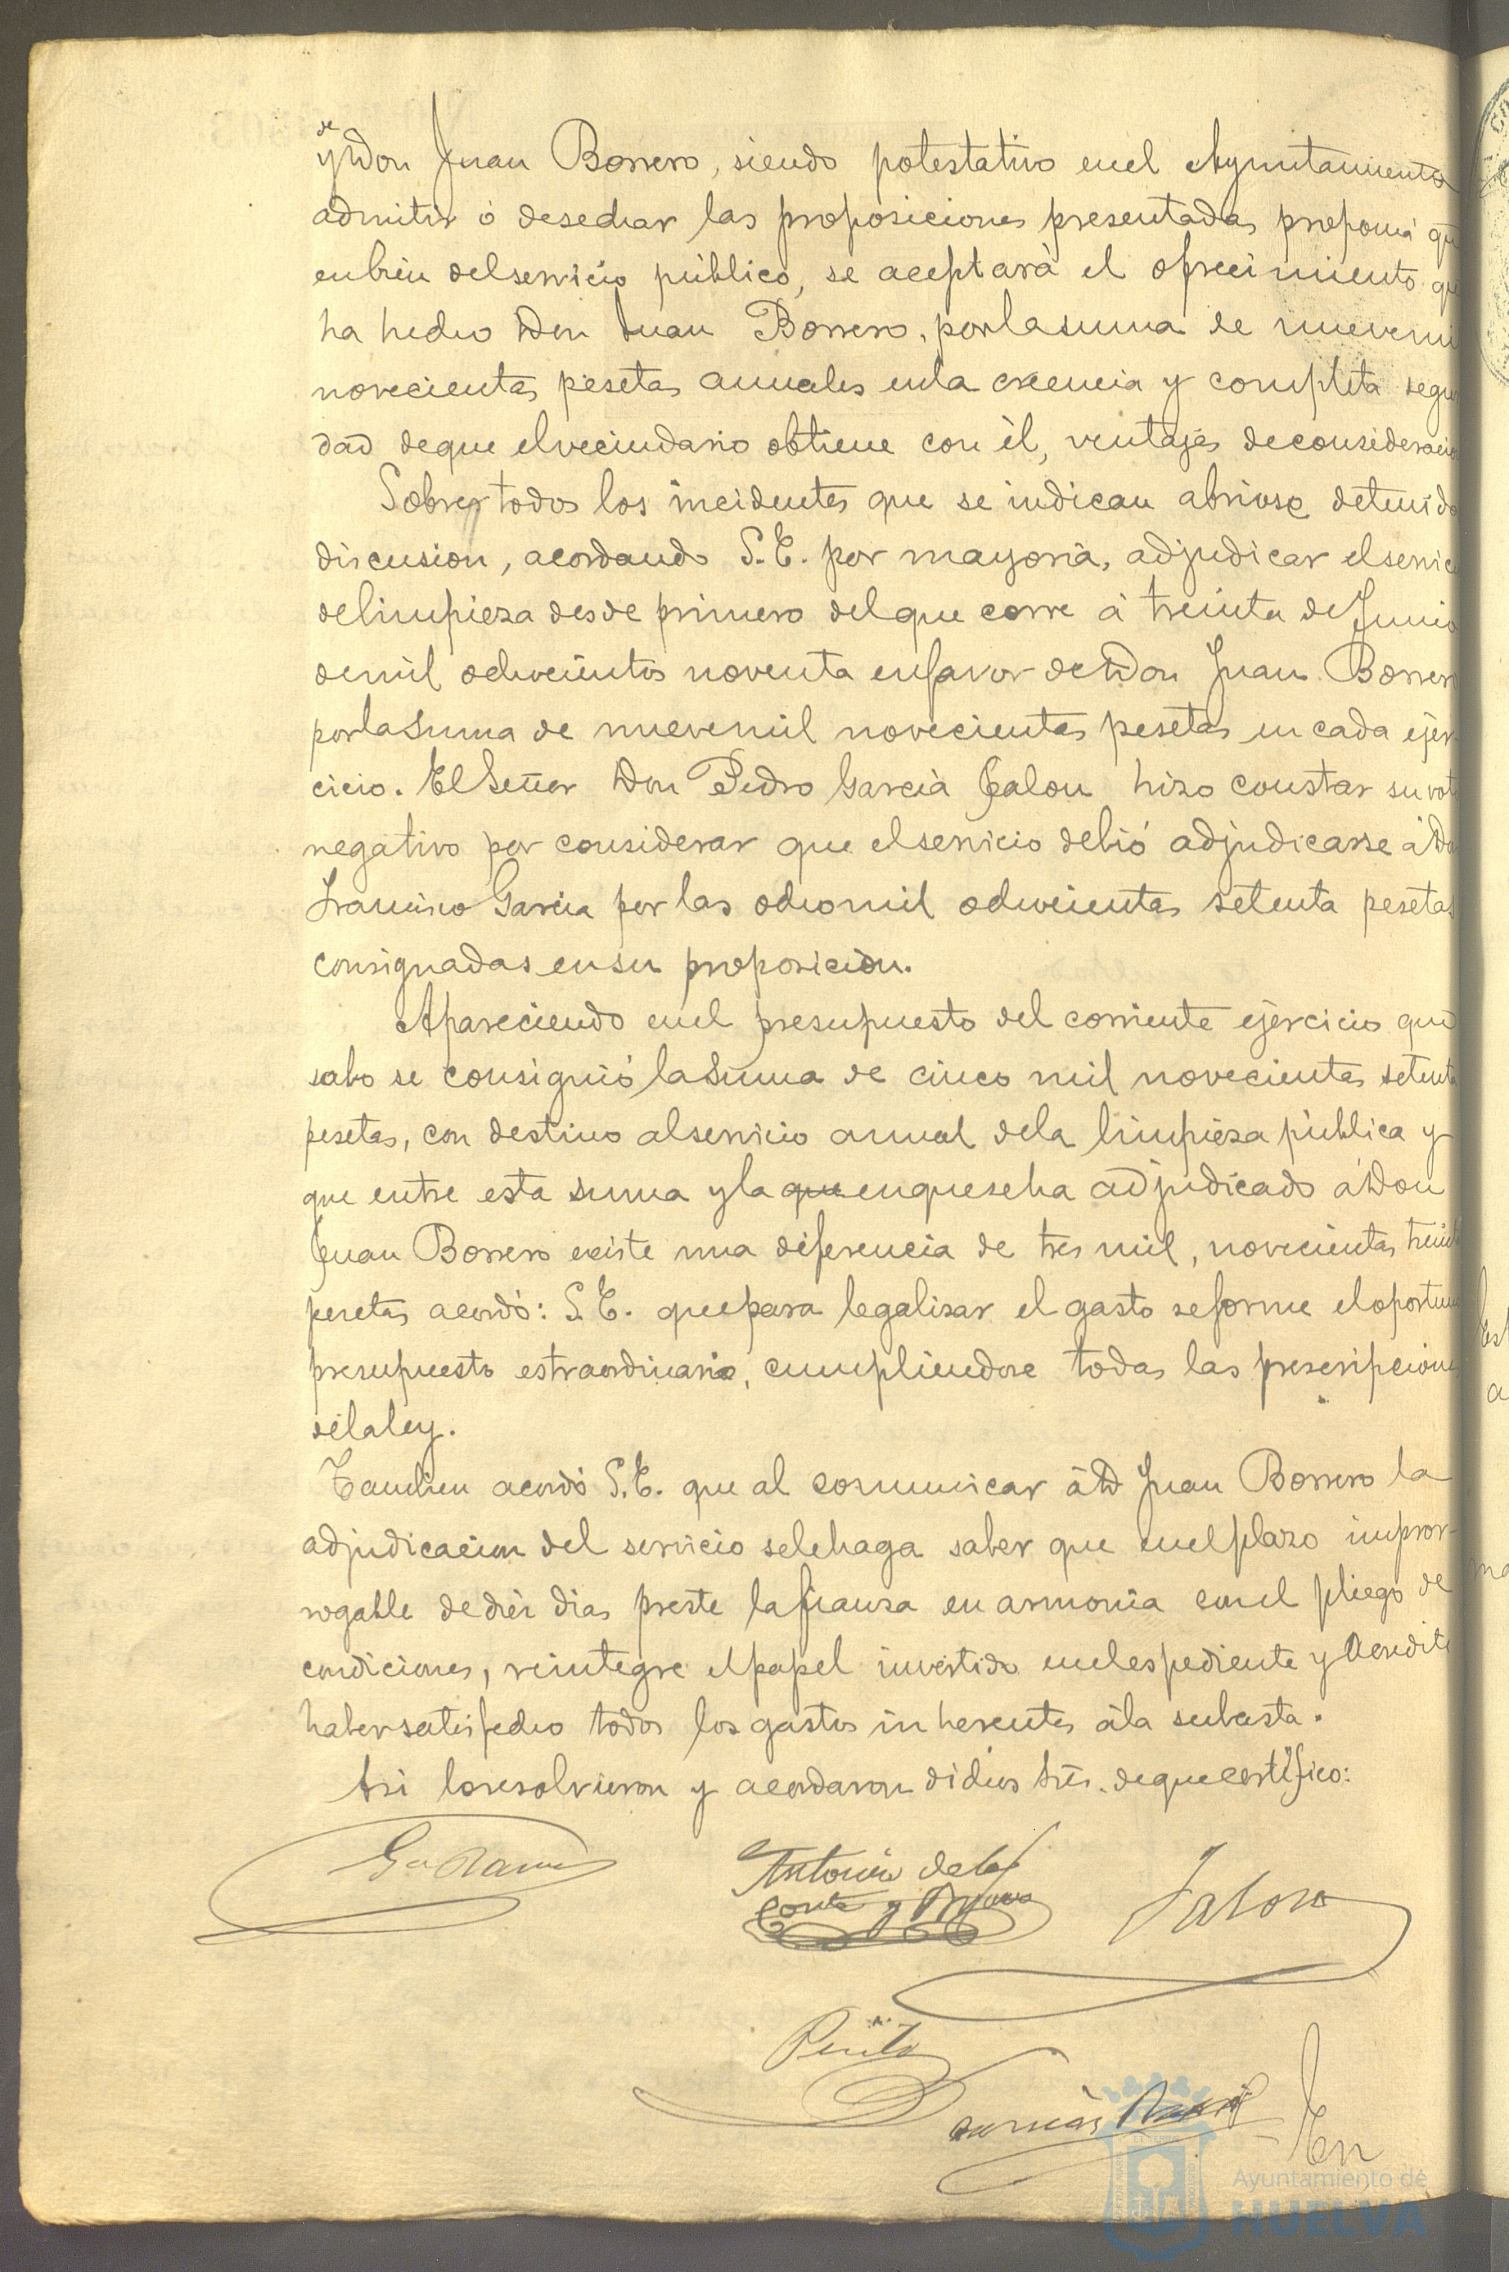 de
y Don Juan Borrero, siendo potestativo en el Ayuntamiento
admitir ó desechar las proposiciones presentadas proponia qe
en bien del servicio público, se aceptará el ofrecimiento que
ha hecho Don Juan Borrero, por la suma de nueve mil
novecientas pesetas anuales en la creencia y completa segu
dad de que el vecindario obtiene con él, ventajas de consideracion
Sobre todos los incidentes que se indican abriose detenida
discusion, acordando S.E. por mayoria, adjudicar el servic
de limpieza desde primero del que corre á treinta de Junio
de mil ochocientos noventa en favor de Don Juan Borrero
por la suma de nueve mil novecientas pesetas en cada ejer
cicio. El Señor Don Pedro Garcia Jalon hizo constar su voto
negativo por considerar que el servicio debió adjudicarse á Dn
Francisco Garcia por las ocho mil ochocientas setenta pesetas
consignadas en su proposicion.
Apareciendo en el presupuesto del corriente ejercicio que
solo se consignó la suma de cinco mil novecientas setenta
pesetas, con destino al servicio anual de la limpieza pública y
que entre esta suma y la que en que se ha adjudicado á Don
Juan Borrero existe una diferencia de tres mil, novecientas treinta
pesetas acordó: S.E. que para legalizar el gasto se forme el oportuno
presupuesto estraordinario, cumpliendose todas las prescripciones
de la ley.
Tambien acordó S.E. que al comunicar á D Juan Borrero la
adjudicacion del servicio se le haga saber que en el plazo impror-
rogable de diez dias preste la fianza en armonia con el pliego de
condiciones, reintegre el papel invertido en el espediente y acredite
haber satisfecho todos los gastos inherentes á la subasta.
Asi lo resolvieron y acordaron dichos Sres. de que certifico:
Antonio de la
Corte y
Jalon
En
Ayuntamiento de
HUELVA